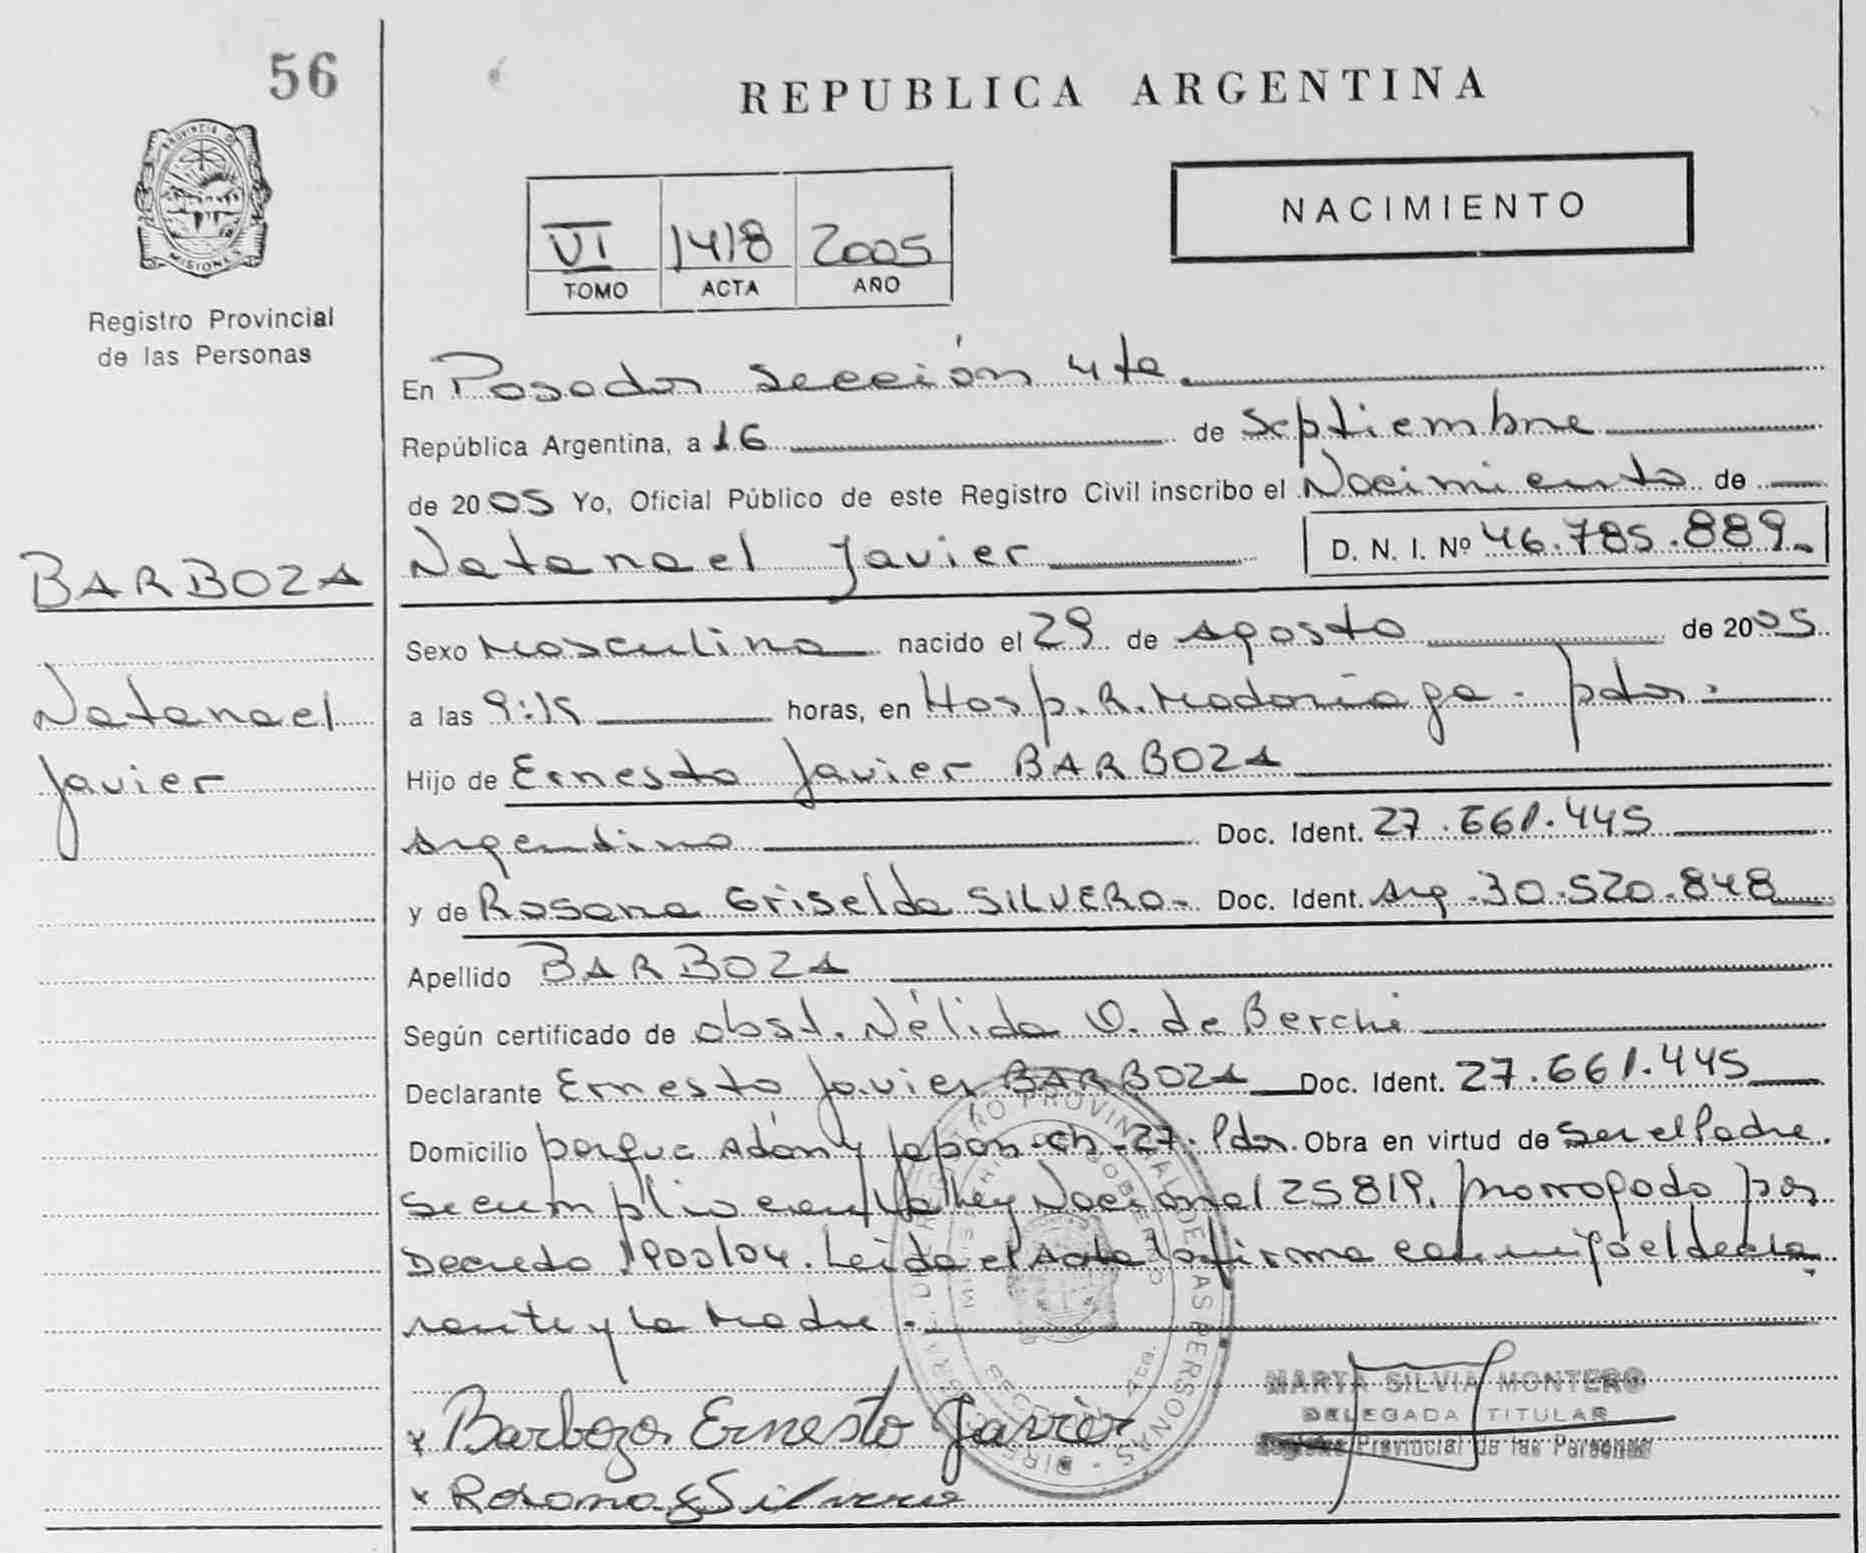 56
REPUBLICA ARGENTINA
PROVINCIA D
MISIONES
Registro Provincial
de las Personas
NACIMIENTO
VI 1418 2005
TOMO ACTA AÑO
En Posadas sección 4ta.
República Argentina, a 16 de septiembre
de 2005 Yo, Oficial Público de este Registro Civil inscribo el Nacimiento de
Natanael Javier D. N. I. Nº 46.785.889
BARBOZA
Natanael
Javier
Sexo Masculino nacido el 29 de agosto de 2005
a las 9:15 horas, en Hosp. R. Madariaga - pdas -
Hijo de Ernesto Javier BARBOZA
argentino Doc. Ident. 27.661.445
y de Rosana Griselda SILVERO - Doc. Ident. arg. 30.520.848
Apellido BARBOZA
Según certificado de obst. Nélida O. de Berchi
Declarante Ernesto Javier BARBOZA Doc. Ident. 27.661.445
Domicilio parque Adán y Japón - ch - 27 - Pdas. Obra en virtud de ser el Padre.
se cumplio con la Ley Nacional 25819, prorrogado por
Decreto 1900/04. Leida el Acta la firma conmigo el decla
rante y la Madre.
x Barboza Ernesto Javier
x Rosana G Silvero
MARTA SILVIA MONTERO
DELEGADA TITULAR
Registro Provincial de las Personas